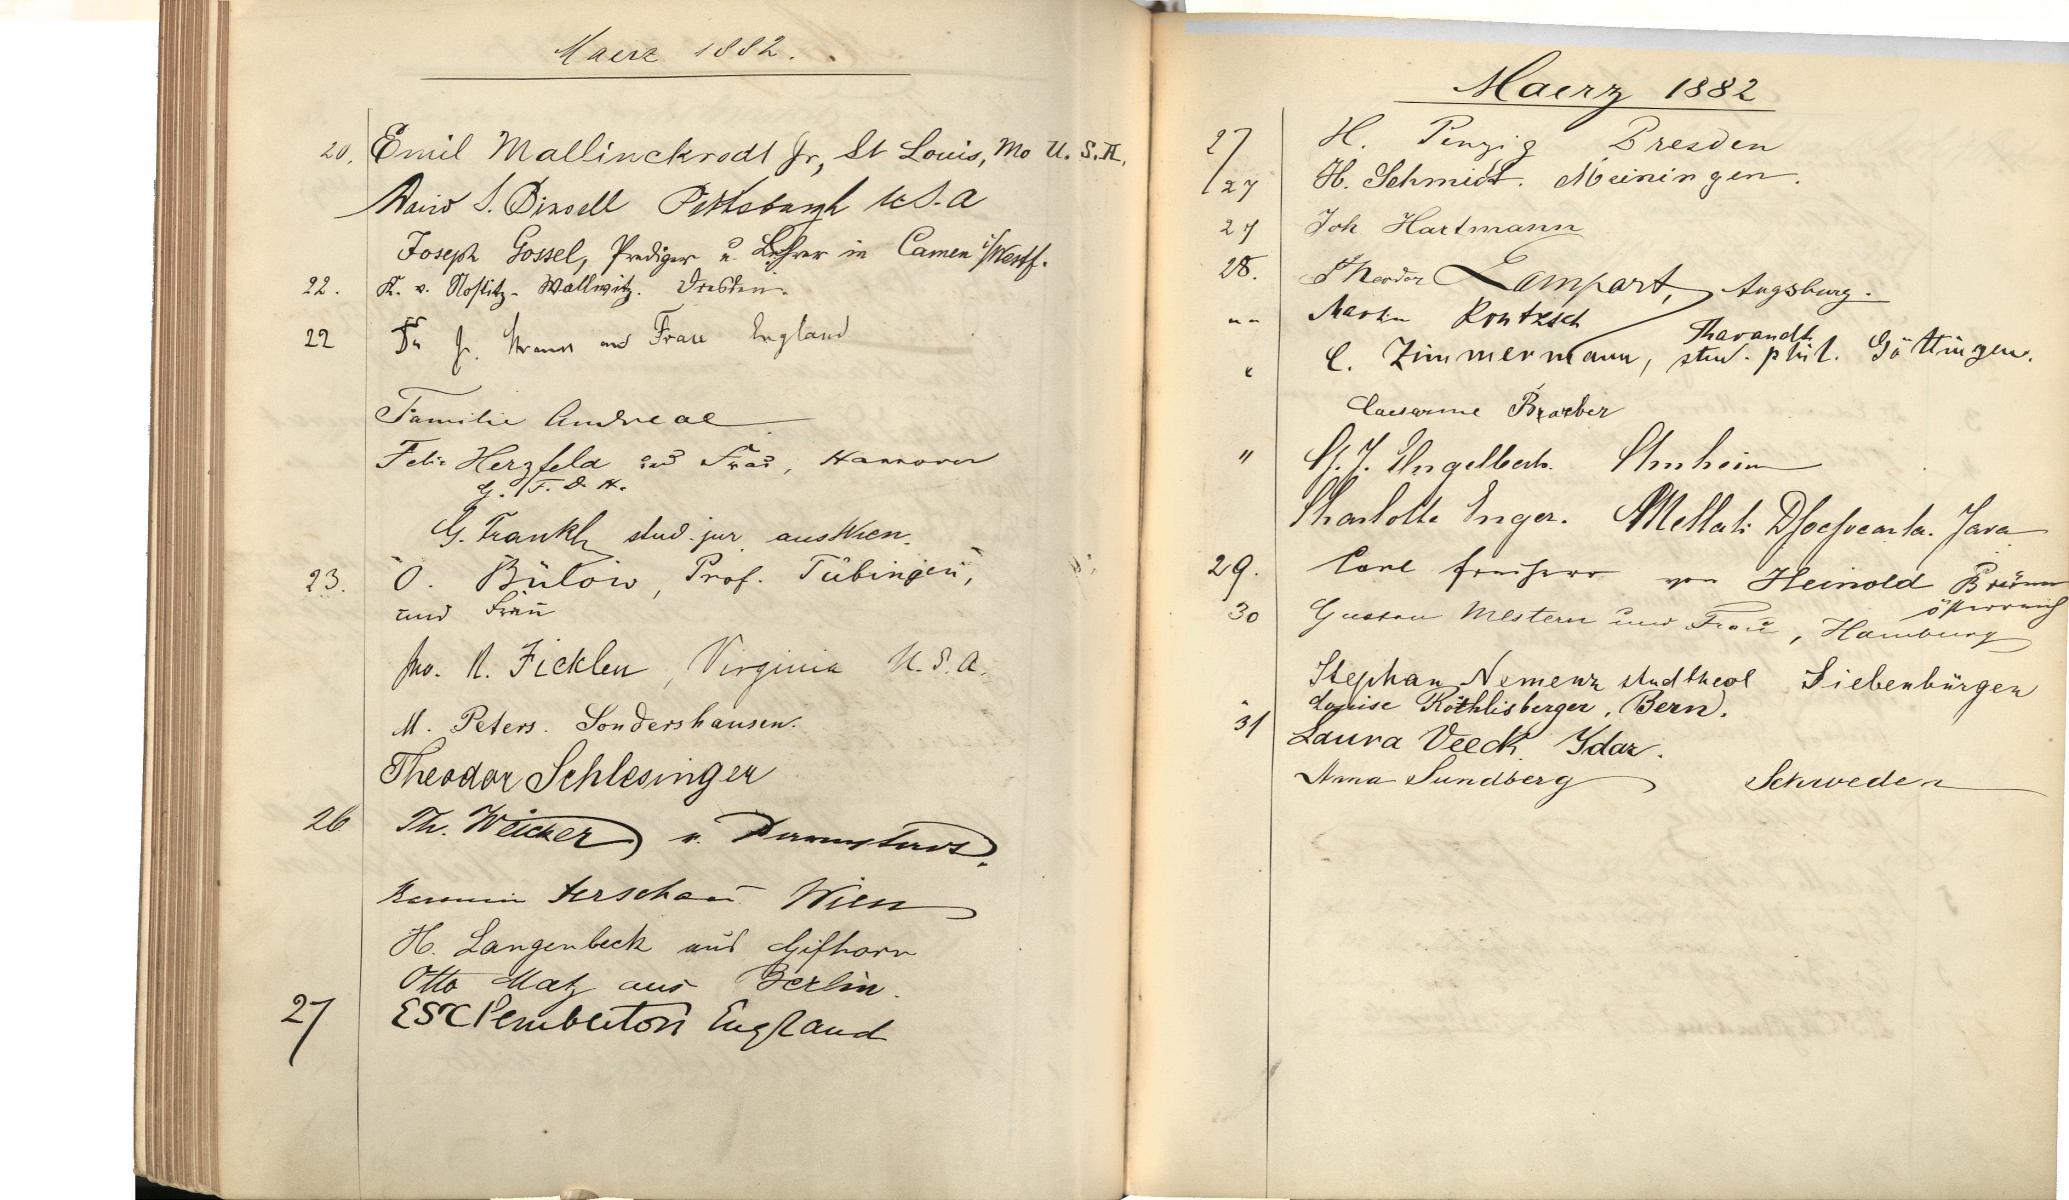 Maerz 1882.
20. Emil Mallinckrodt Jr, St Louis, Mo U.S.A.
S. Pittsburgh U.S.A
Joseph Gossel, Prediger u. Lehrer in Camen i/Westf.
22. K. v. Nostitz-Wallwitz. Dresden.
22 J. und Frau England
Familie Andreae
Felix Herzfeld und Frau, Hannover
G. F. D. H.
G. Frankl, stud. jur. aus Wien.
23. O. Bülow, Prof. Tübingen,
und Frau
Jno. R. Ficklen, Virginia U.S.A.
M. Peters. Sondershausen.
Theodor Schlesinger
26 Th. Weicker v. Darmstadt.
Terschau Wien
H. Langenbeck aus Gifhorn
Otto Matz aus Berlin.
27 ESC Pemberton England
Maerz 1882
27 H. Penzig Dresden
27 H. Schmidt. Meiningen.
27 Joh Hartmann
28. Theodor Lampart, Augsburg.
" " Martin Rontzsch Tharandt
" C. Zimmermann, stud. phil. Göttingen.
Braeber
" Engelbert. Arnheim
Charlotte Enger. Mellati Djocjocarta. Java
29. Carl Freiherr von Heinold Brünn
Österreich
30 Gustav Mestern und Frau, Hamburg
Stephan Nemenz stud theol Siebenbürgen
Louise Röthlisberger, Bern.
31 Laura Veeck Ydar.
Anna Sundberg Schweden